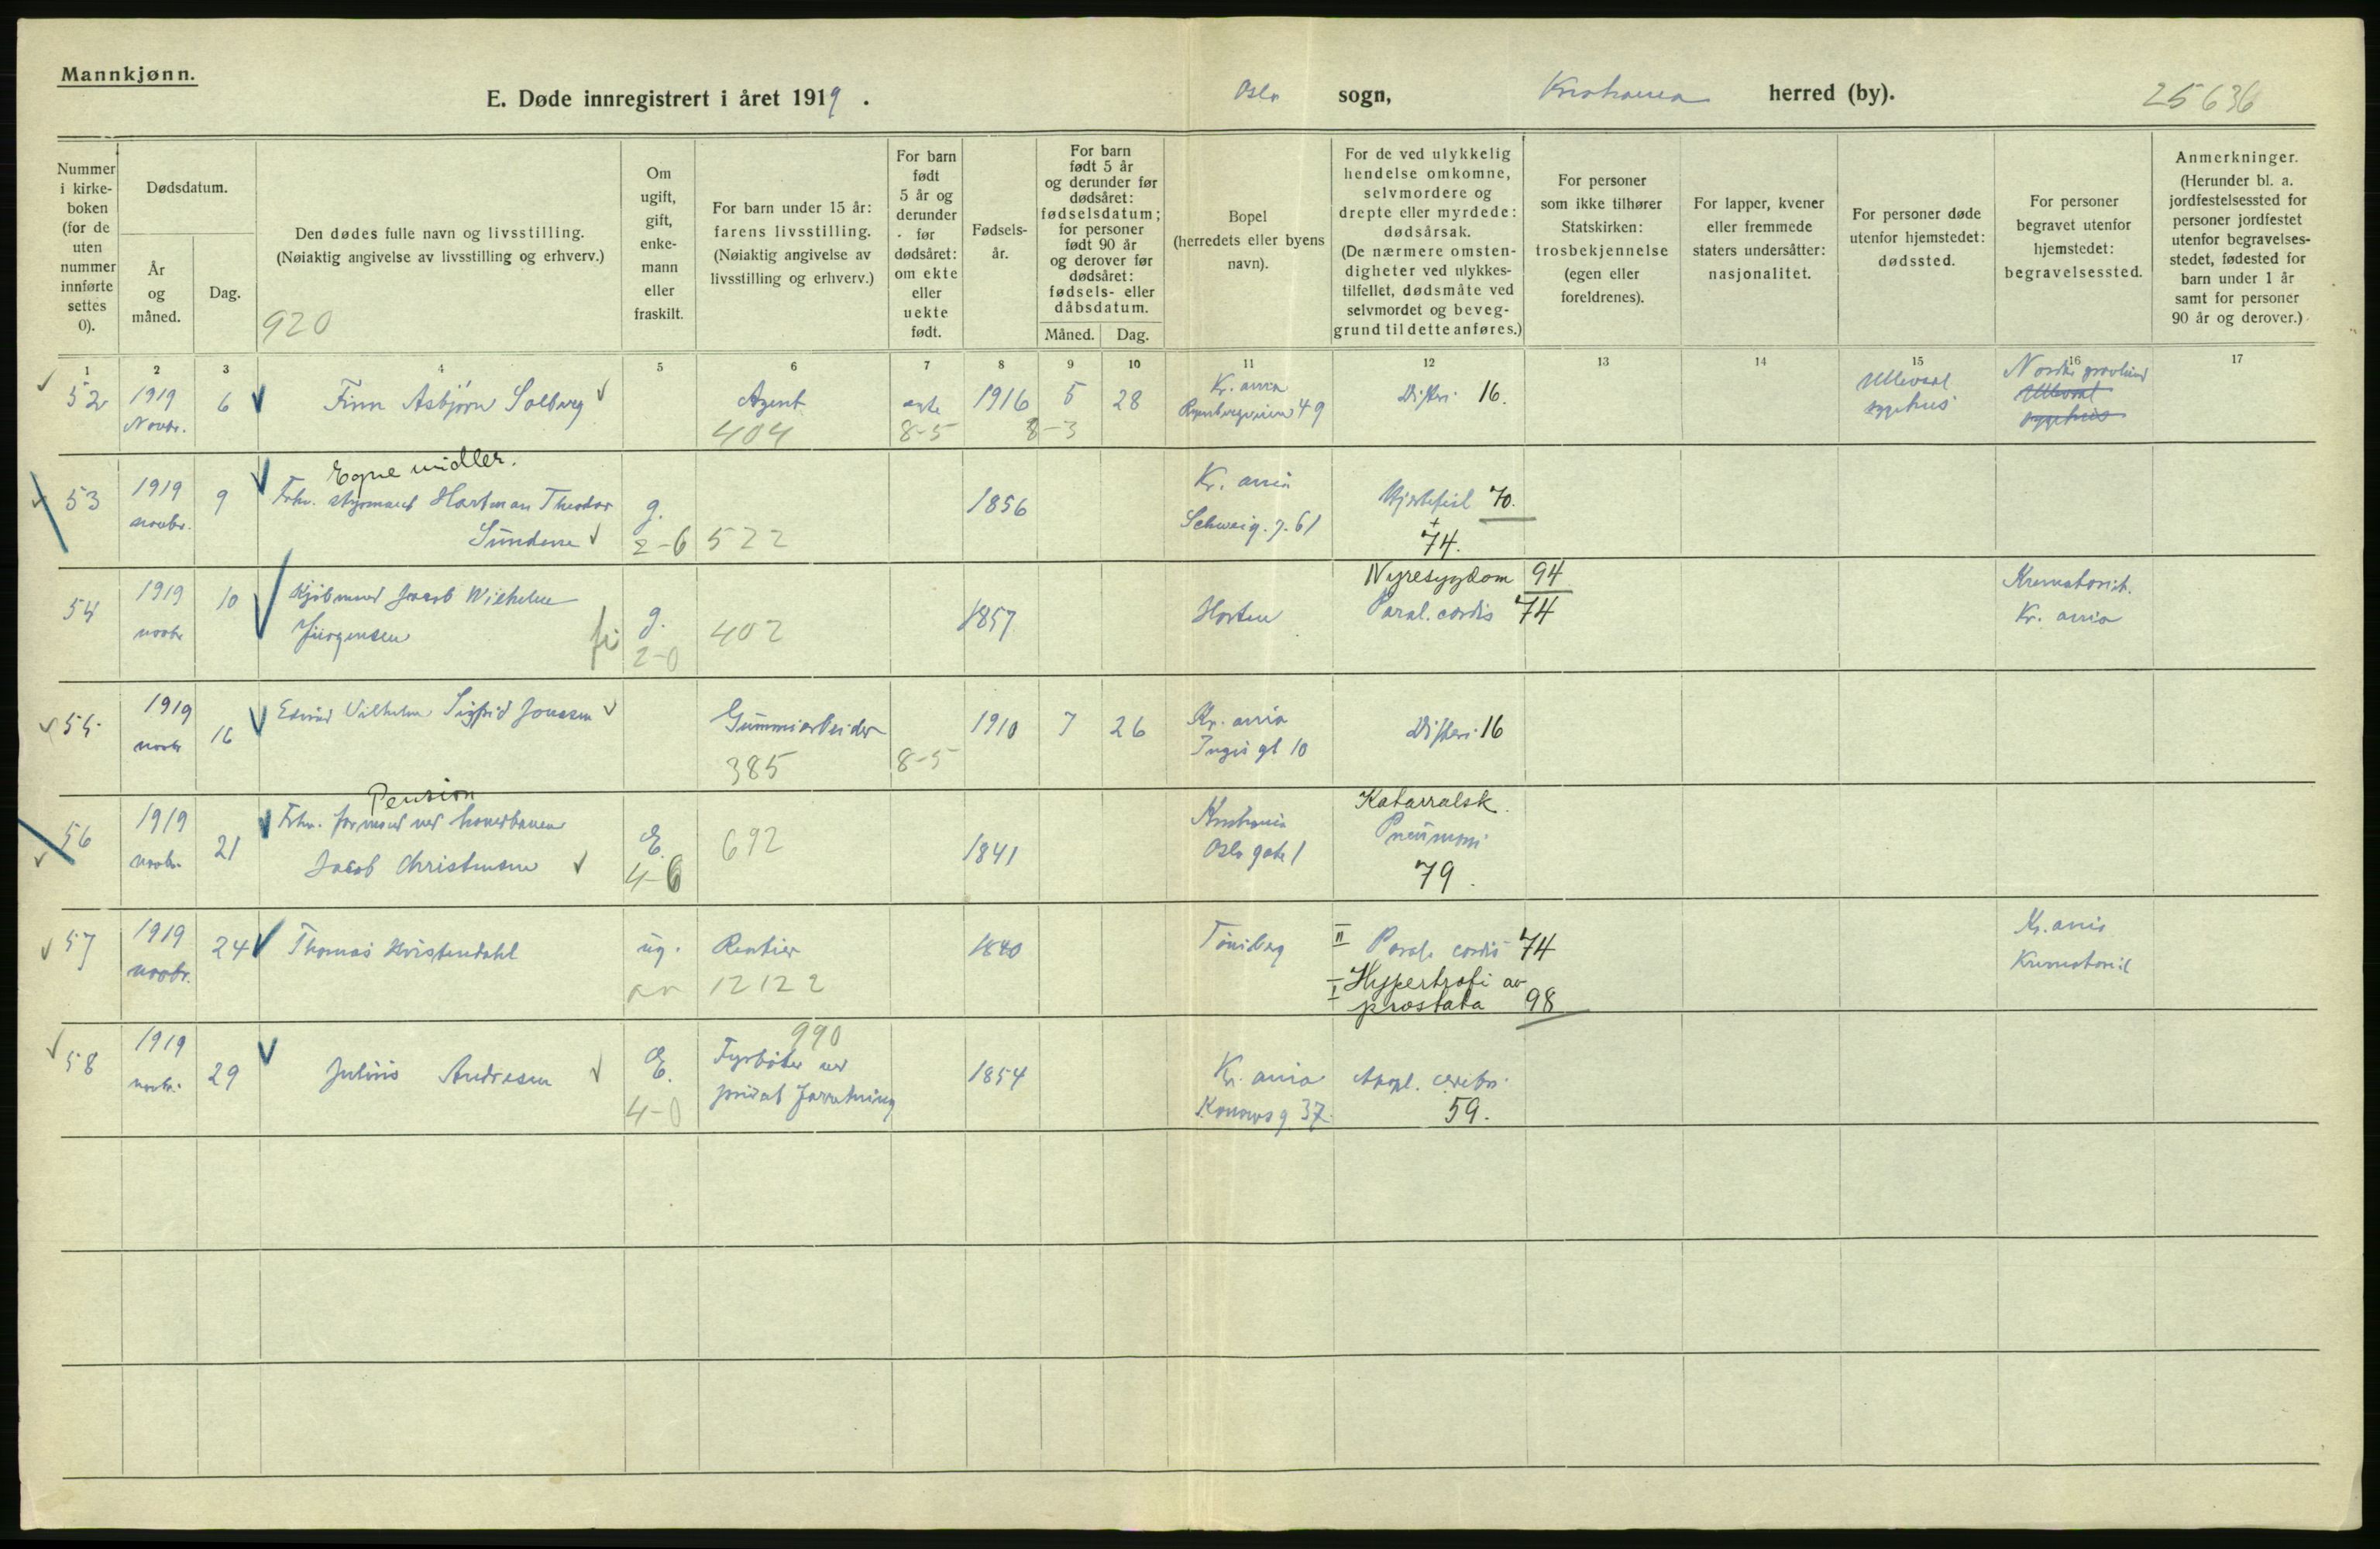 Mannkjønn.
E. Døde innregistrert i året 1919. Oslo sogn, Kristiania herred (by). 25636
Nummer i kirke-boken (for de uten nummer innførte settes 0).
Dødsdatum.
År og måned.
Dag.
Den dødes fulle navn og livsstilling.
(Nøiaktig angivelse av livsstilling og erhverv.)
920
Om ugift, gift, enke-mann eller fraskilt.
For barn under 15 år: farens livsstilling.
(Nøiaktig angivelse av livsstilling og erhverv.)
For barn født 5 år og derunder før dødsåret: om ekte eller uekte født.
Fødsels-år.
For barn født 5 år og derunder før dødsåret: fødselsdatum; for personer født 90 år og derover før dødsåret: fødsels- eller dåbsdatum.
Måned. Dag.
Bopel
(herredets eller byens navn).
For de ved ulykkelig hendelse omkomne, selvmordere og drepte eller myrdede: dødsårsak.
(De nærmere omsten-digheter ved ulykkes-tilfellet, dødsmåte ved selvmordet og beveg-grund til dette anføres.)
For personer som ikke tilhører Statskirken: trosbekjennelse (egen eller foreldrenes).
For lapper, kvener eller fremmede staters undersåtter: nasjonalitet.
For personer døde utenfor hjemstedet: dødssted.
For personer begravet utenfor hjemstedet: begravelsessted.
Anmerkninger.
(Herunder bl. a. jordfestelsessted for personer jordfestet utenfor begravelses-stedet, fødested for barn under 1 år samt for personer 90 år og derover.)
1 2 3 4 5 6 7 8 9 10 11 12 13 14 15 16 17
52 1919 Novbr. 6 Finn Asbjørn Solberg Agent 404 ekte 8-5 1916 5 28 8-3 Kr.ania 49 Difteri 16. Ullevaal sygehus Nordre gravlund Ullevaal sygehus
Egne midler.
53 1919 novbr. 9 Fhv. styrmand Hartman Theodor
g. 2-6 522 1856 Kr. ania Schweig. g. 61 Hjertefeil 70. + 74.
54 1919 novbr 10 Kjøbmand Jacob Wilhelm
Jürgensen g. 2-0 402 1857 Horten Nyresygdom 94 Paral. cordis 74 Krematoriet. Kr. ania
55 1919 novbr 16 Vilhelm Sigfrid Gummiarbeider 385 8-5 1910 7 26 Kr. ania gt 10 Difteri 16
Pension
56 1919 novbr. 21 Fhv. formand ved
Jacob Christensen E. 4-6 692 1841 Kristiania Oslo gate 1 Katarralsk. Pneumoni 79.
57 1919 novbr. 24 Thomas Hvistendahl ug. Rentier 12122 1840 Tønsberg II Paral. cordis 74
I Hypertrofi av prostata 98 Kr.ania Krematoriet
58 1919 novbr. 29 Julius Andresen E. 4-0 990 Fyrbøter ved privat forretning 1854 Kr. ania Konows g 37. Apopl. cerebri 59.